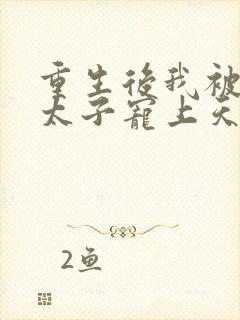 重生後我被
太子寵上天
2鱼